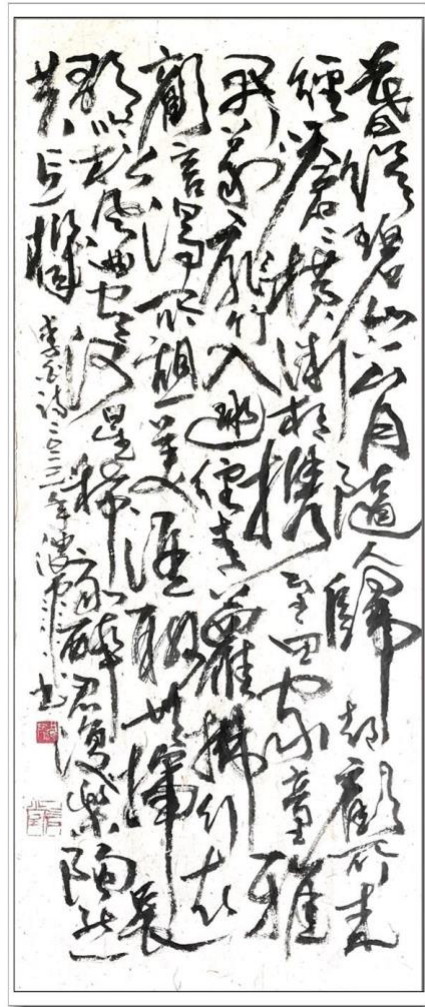 暮從碧山下山月隨人歸却顧所来
徑蒼蒼橫翠微相携及田家童稚
開荆扉綠竹入幽徑青蘿拂行衣
歡言得所憩美酒聊共揮長
歌吟松風曲尽河星稀我醉君復樂陶然
共忘機
李白诗二〇二三年
书